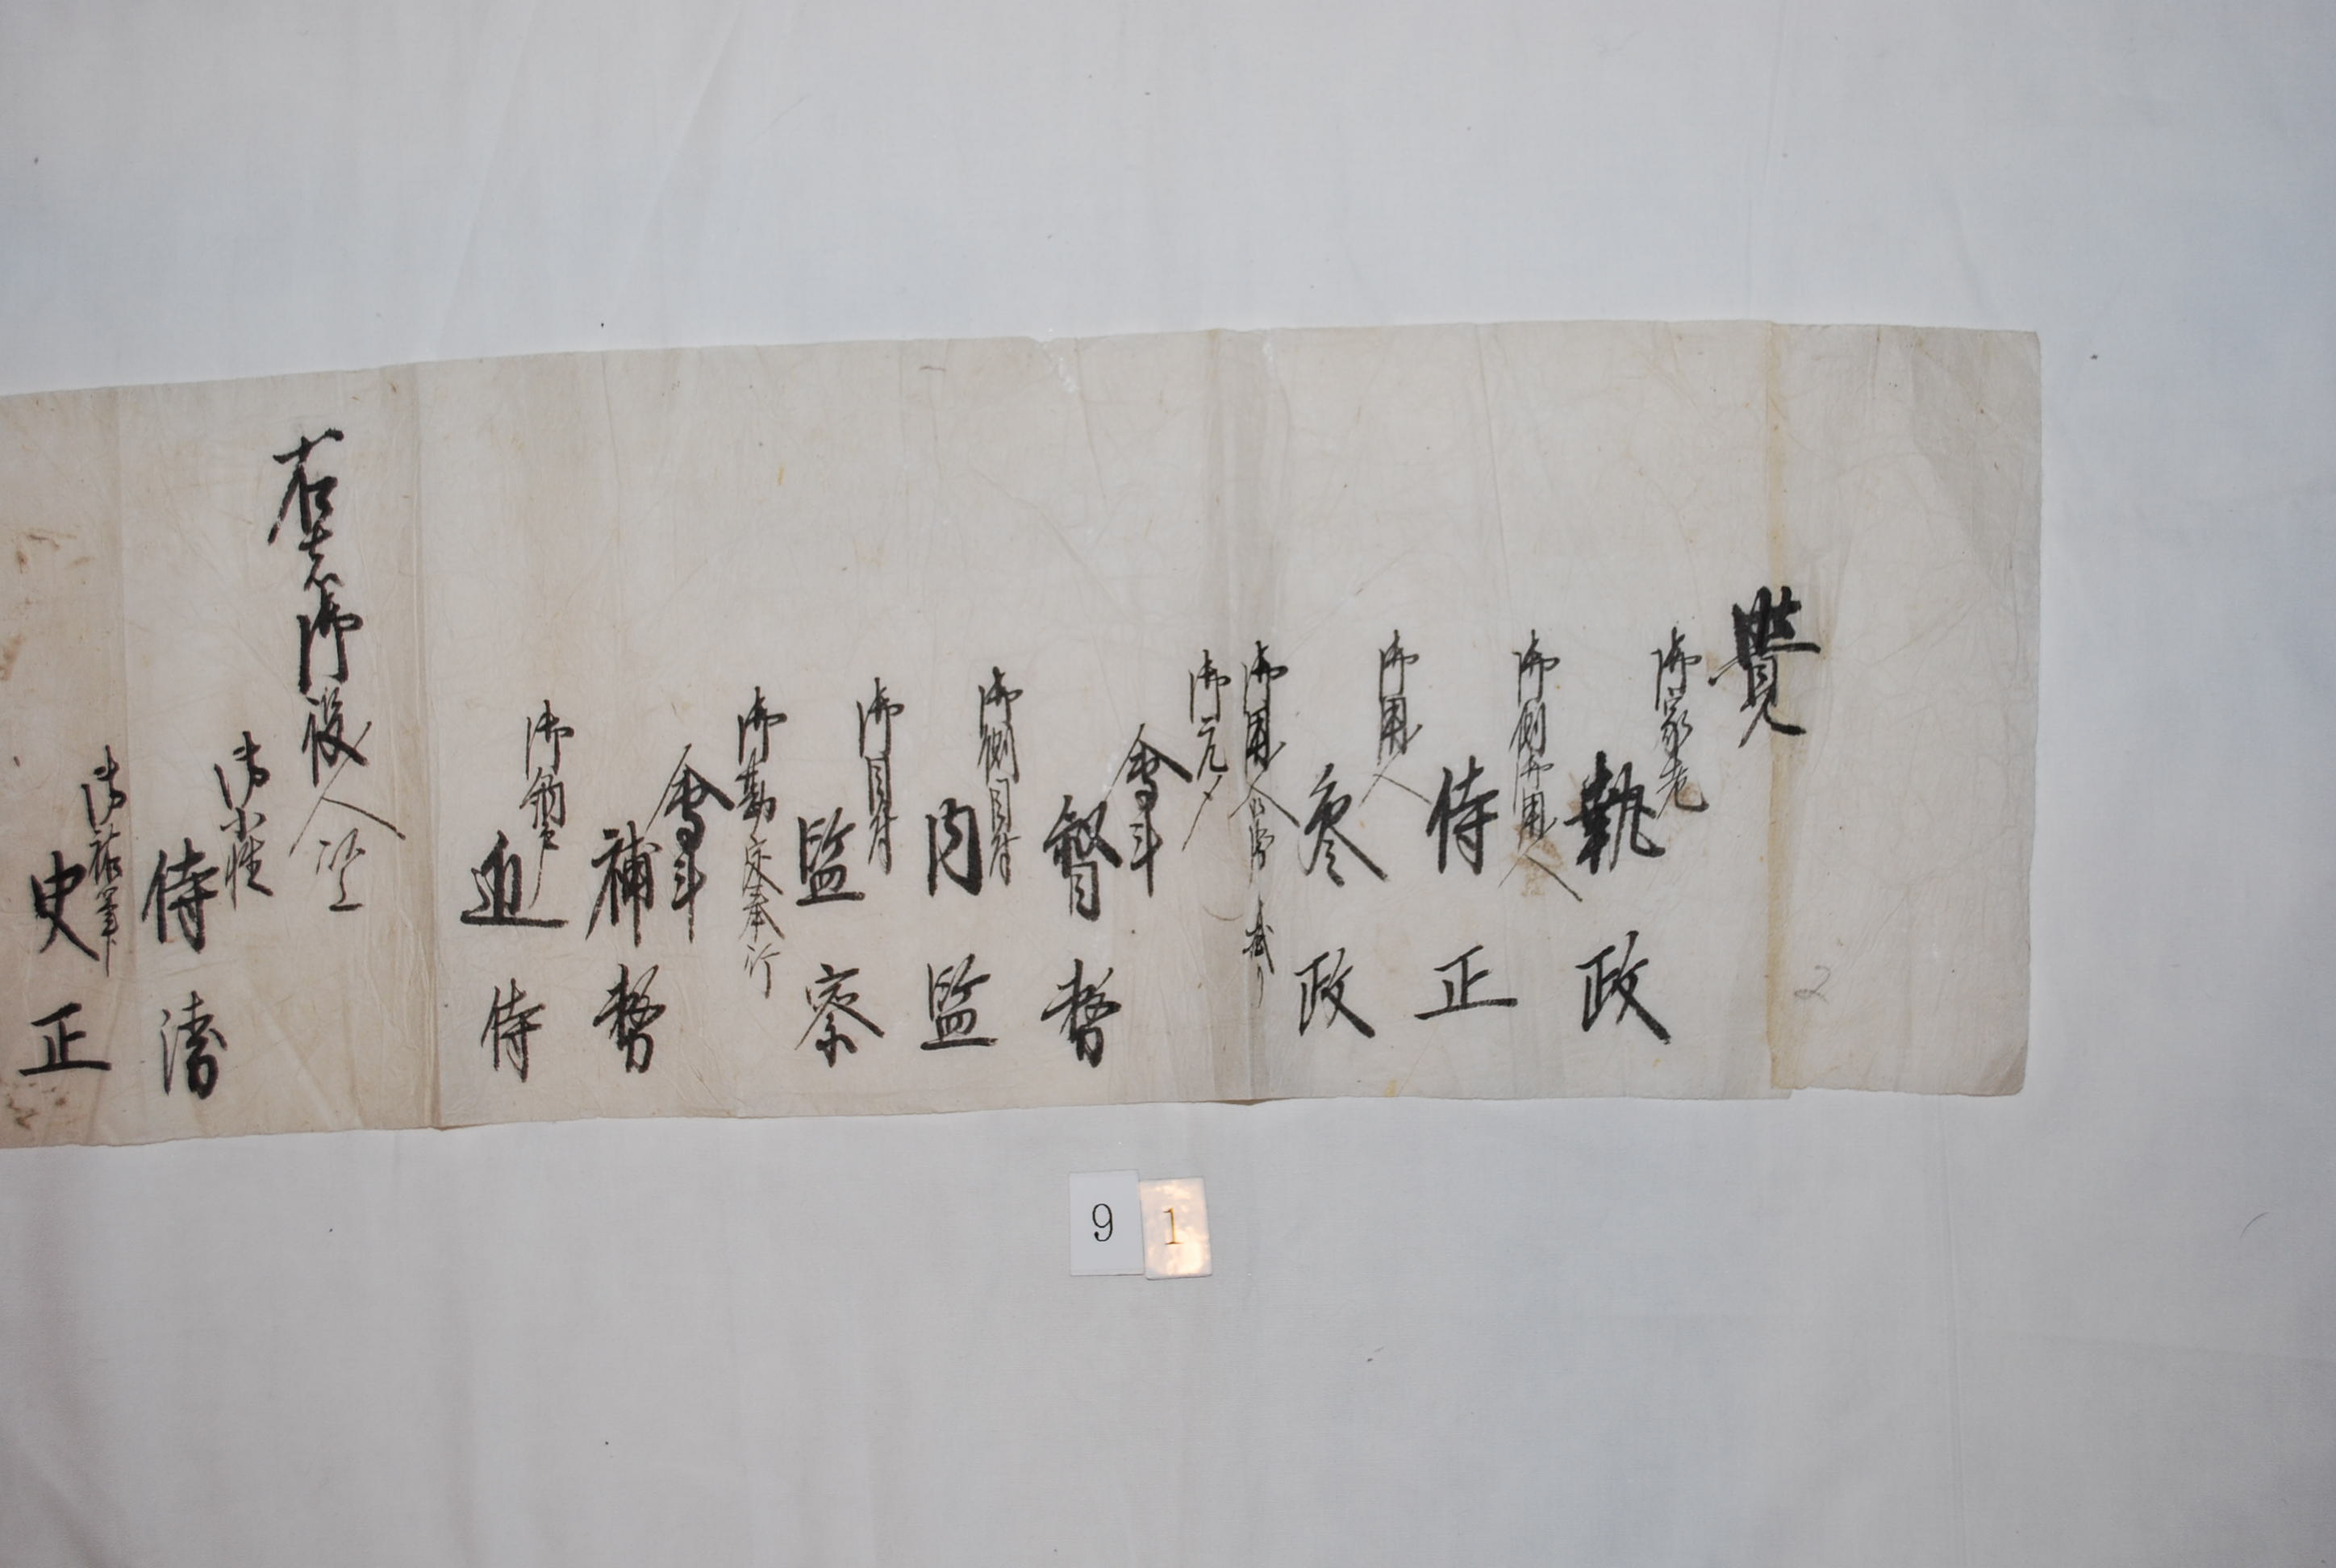 覺
御家老
執政
御側御用人
侍正
御用人
参政
御用人
御元〆
會計
督務
御側目付
内監
御目付
監察
御勘定奉行
會計
補務
御納戸
近侍
右者御役人
御小姓
侍
御祐筆
史正
2
9 1